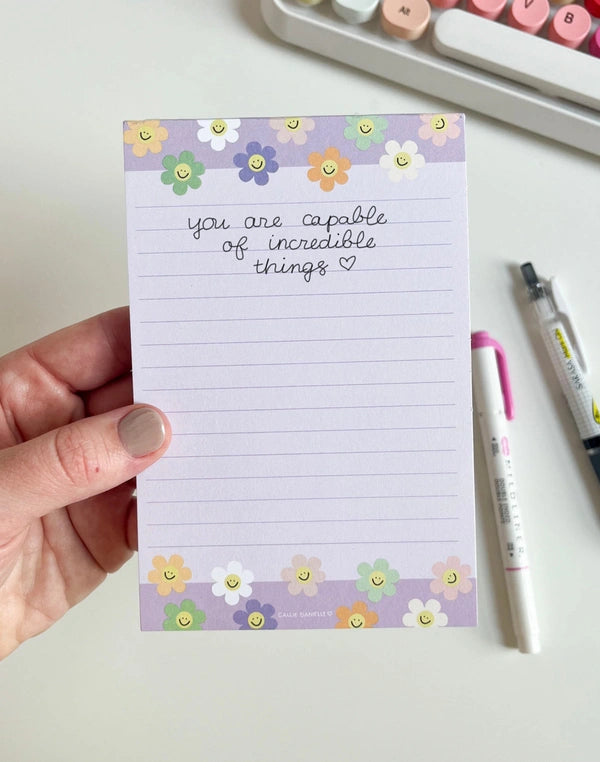 Alt
V
B
you are capable
of incredible
things ♡
CALLIE DANIELLE ♡
MILDLINER